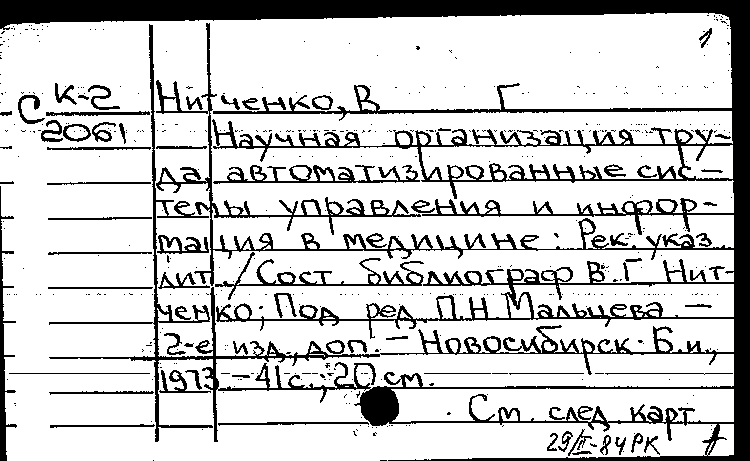 1
К-2
С
2061
Нитченко, В Г
Научная организация тру-
да, автоматизированные сис-
темы управления и инфор-
мация в медицине: Рек. указ.
лит. / Сост. библиограф В.Г. Нит-
ченко; Под ред. П.Н. Мальцева. —
2-е изд., доп. — Новосибирск: Б.и.,
1973 — 41с.; 20 см.
См. след. карт.
29/II-84 РК